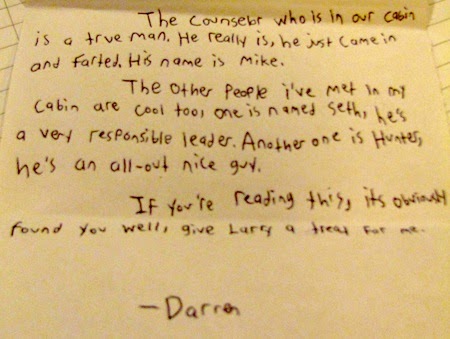 The Counselor who is in our cabin
is a true man. He really is, he just came in
and farted. His name is Mike.
The other people i've met in my
cabin are cool too, one is named Seth, he's
a very responsible leader. Another one is Hunter,
he's an all-out nice guy.
If you're reading this, its obviously
found you well, give Larry a treat for me.
—Darren